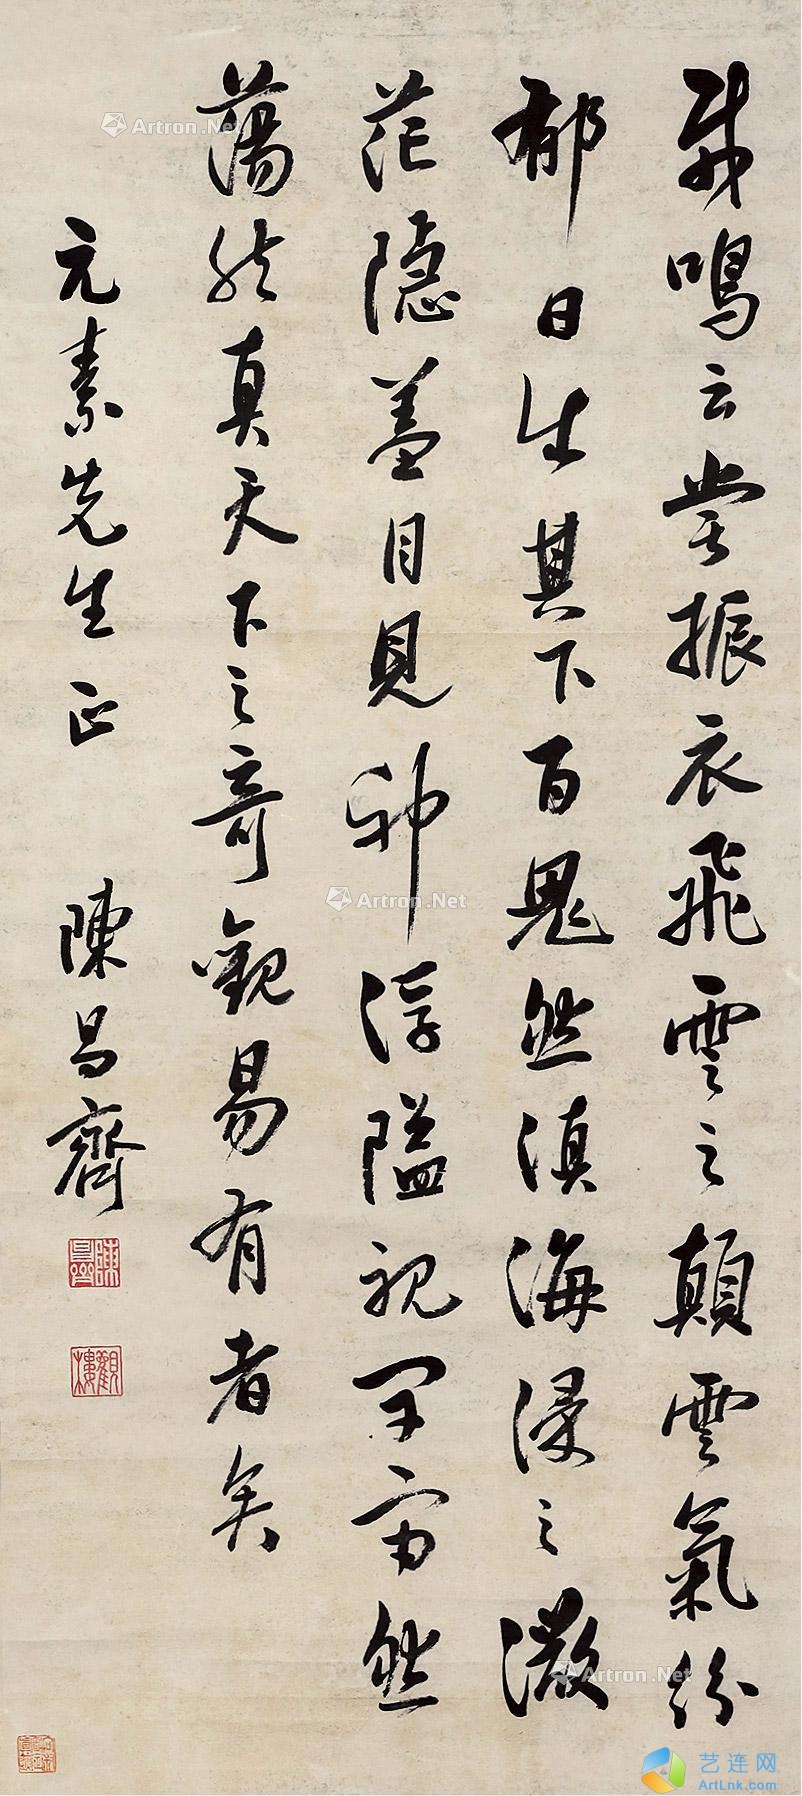 鳴云嘗振衣飛雲之顛雲氣紛
郁日生其下百鬼然滇海浸之激
茫隱蓋目見神浮隘視宇宙然
蕩然真天下之奇觀易有者矣
元素先生正
陳昌齊
陳昌齊
觀樓
Artron.Net
Artron.Net
Artron.Net
艺连网
ArtLnk.com